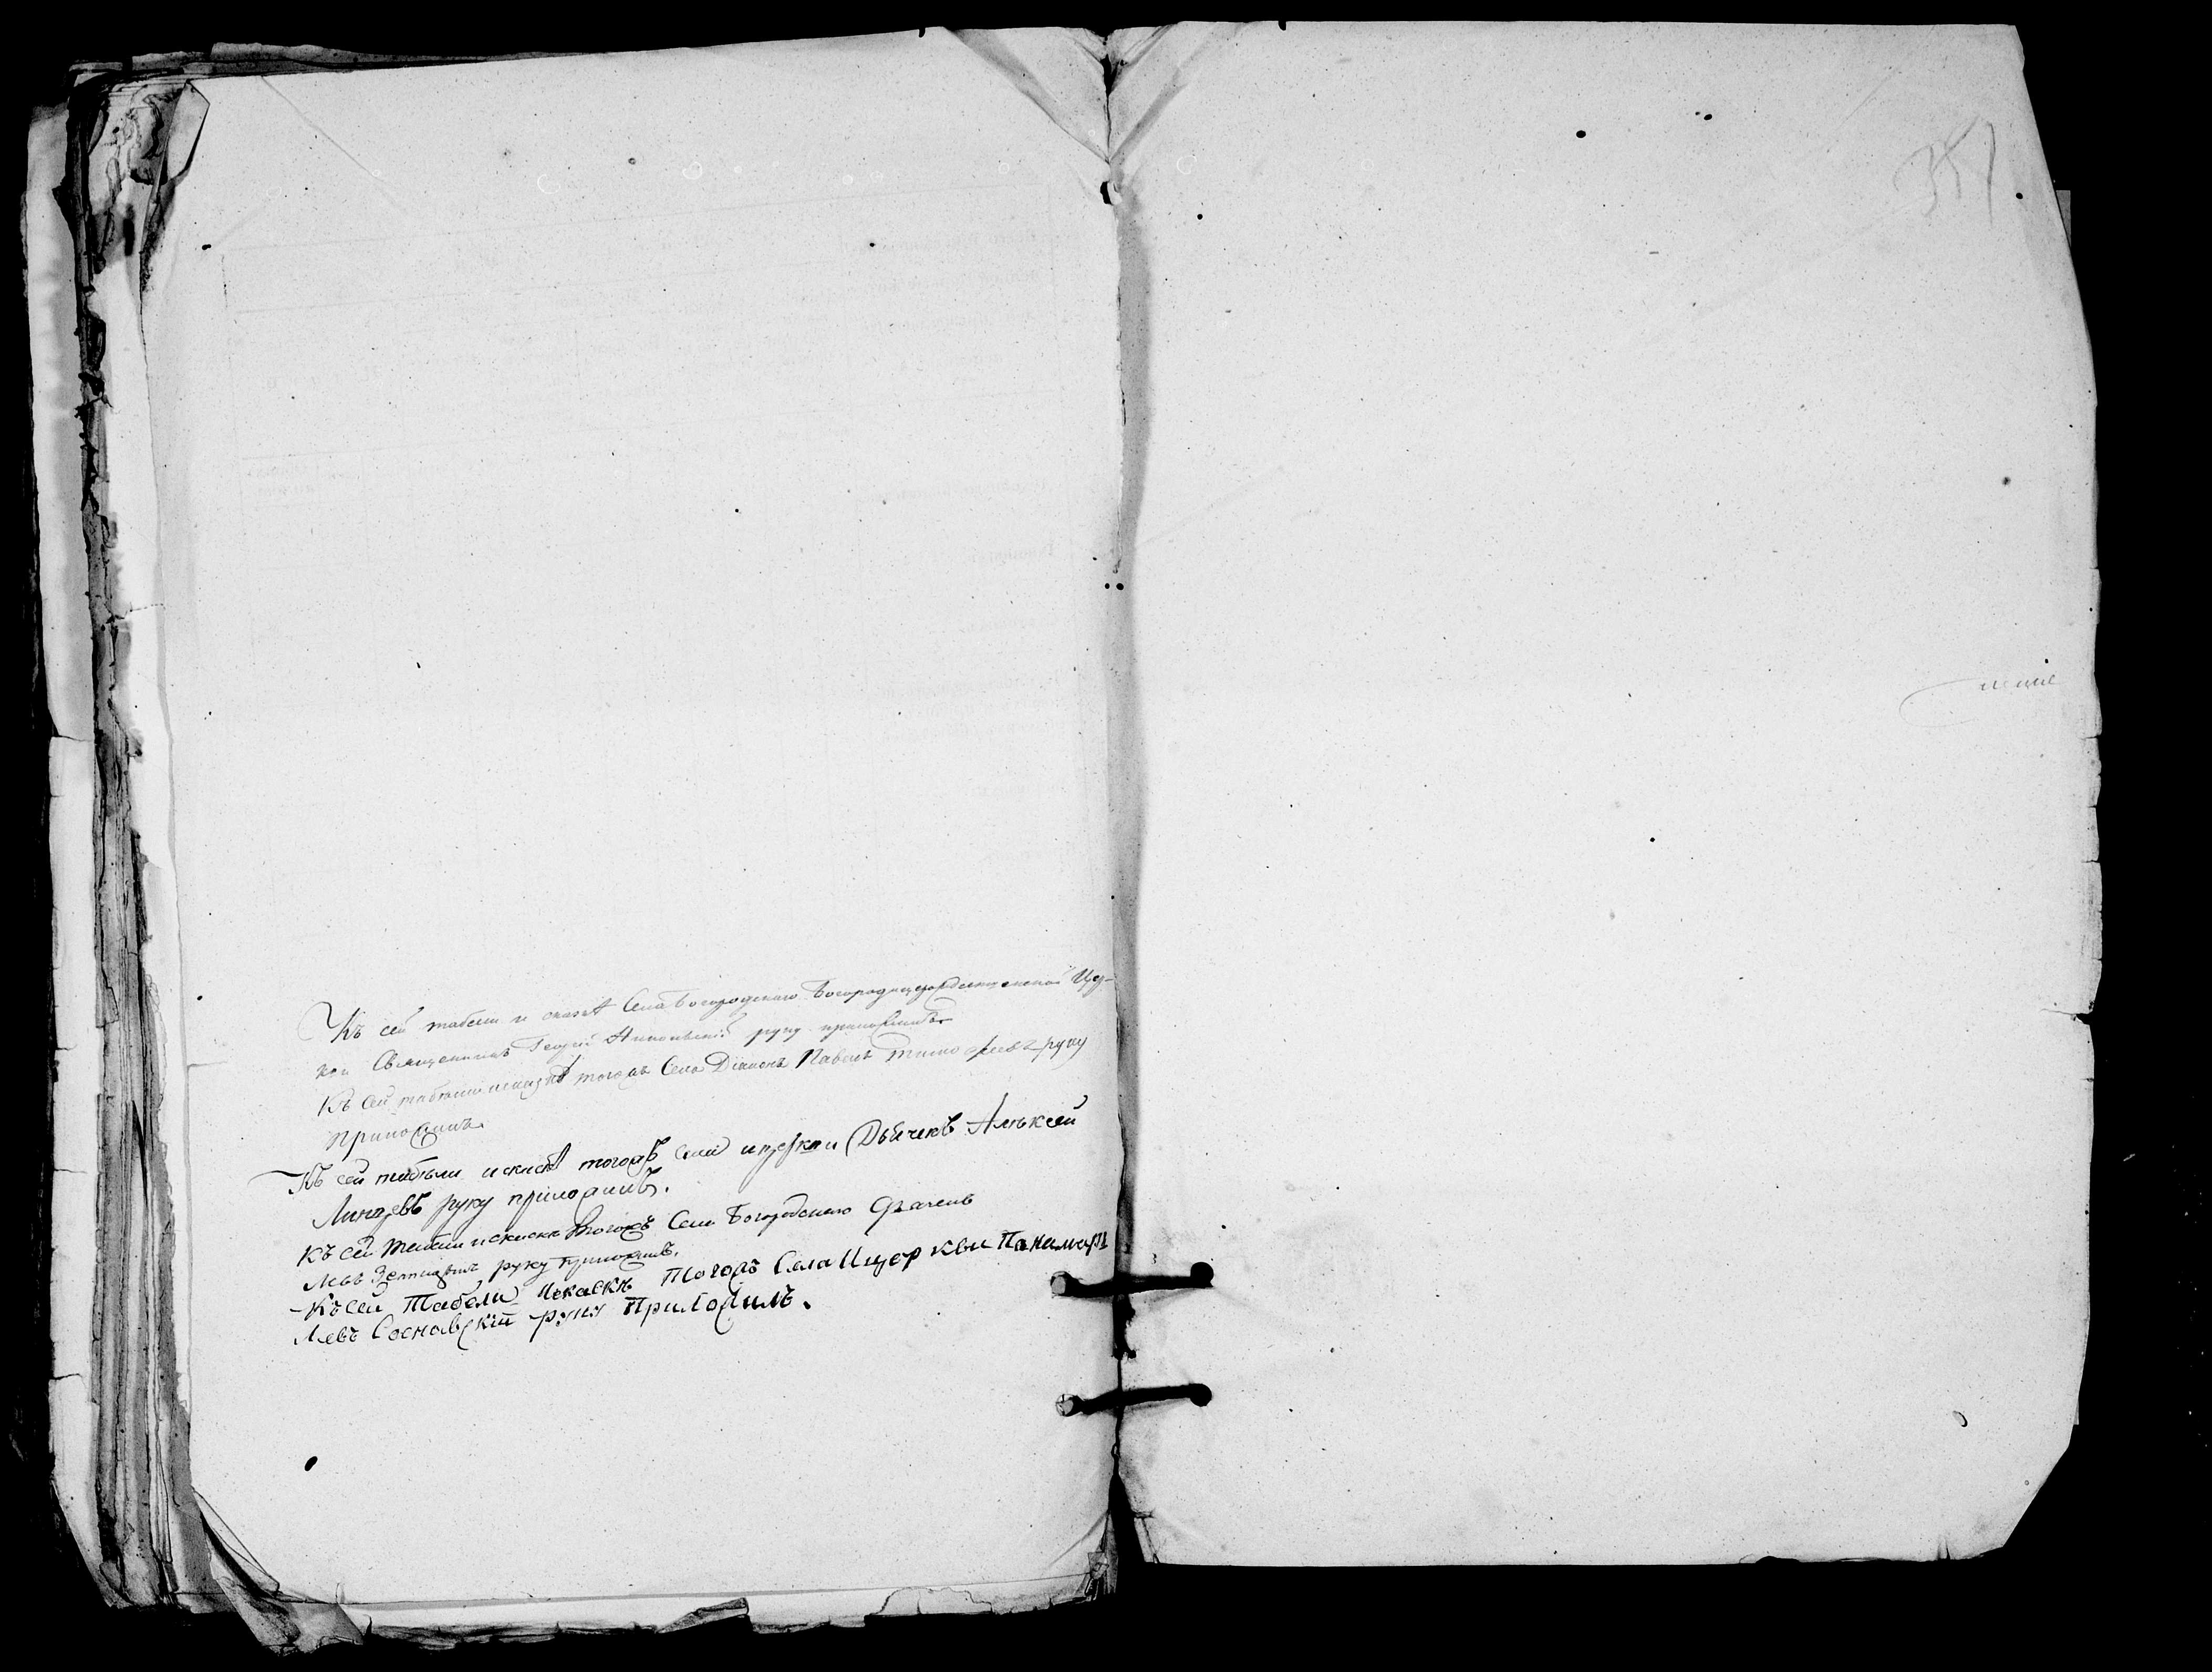 Къ сей табели и сказкѣ Села Богородскаго Богородицерождественской Цер-
кви Священникъ Георгий руку приложилъ
Къ сей табели и сказкѣ тогожъ Села Дiаконъ Павелъ Тимофѣевъ руку
приложилъ
Къ сей табѣли искаскѣ тогожъ села ицеркви Дьячекъ Алѣксѣй
руку приложилъ.
Къ сей табели искаски тогожъ Села Богородскаго Дьячекъ
Левъ руку приложилъ.
Къ сей Табели Искаскѣ Тогожъ Села Ицеркви Панамарь
Левъ Сосновскiй руку Приложилъ.
357